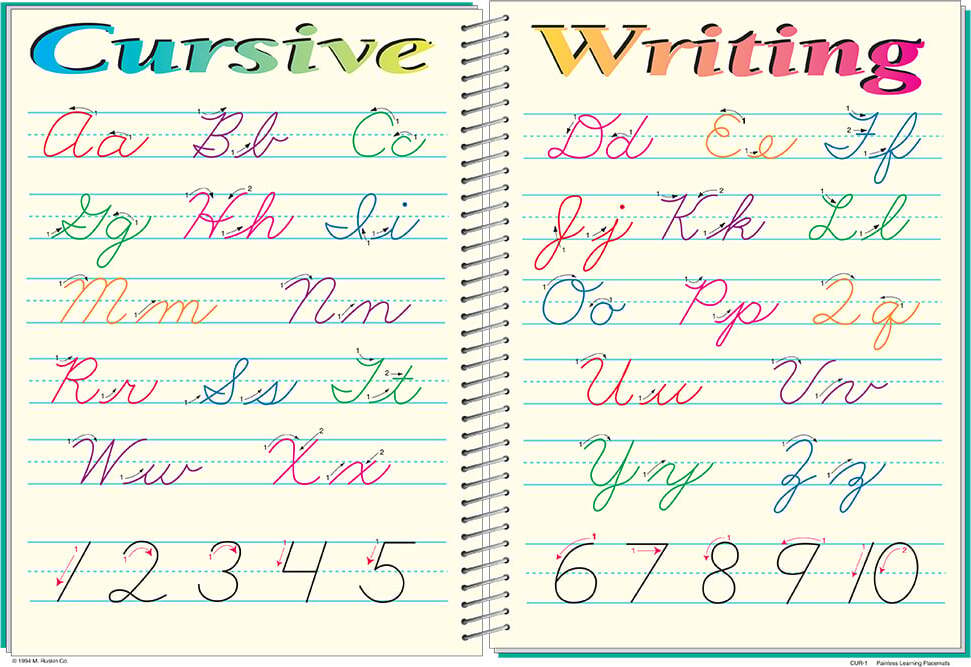 Cursive Writing
Aa Bb Cc Dd Ee Ff
Gg Hh Ii Jj Kk Ll
Mm Nn Oo Pp Qq
Rr Ss Tt Uu Vv
Ww Xx Yy Zz
1 2 3 4 5 6 7 8 9 10
© 1994 M. Ruskin Co. CUR-1 Painless Learning Placemats